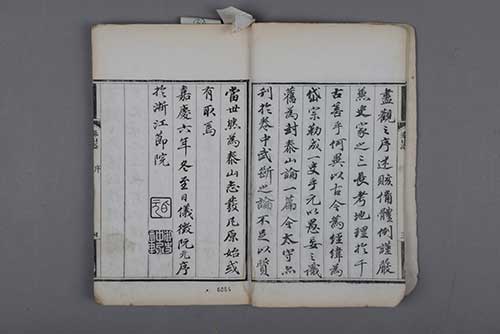 盡觀之序述賅備體例謹嚴
兼史家之三長考地理於千
古善乎何以古今為經緯為
岱宗勒成一史乎元以愚妄之識
舊為封泰山論一篇今太守亦
刊於卷中武斷之論不足以質
當世與為泰山志發凡原始或
有取焉
嘉慶六年冬至日儀徵阮元序
於浙江節院
序
6084